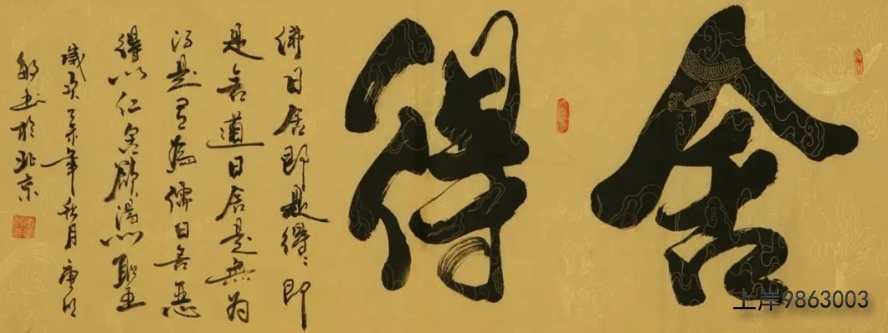 舍得
佛曰舍即是得、即
是舍道曰舍是無为
得是有為儒曰舍惡
得以仁舍欲得以聖
歲年秋月
敏书於北京
上岸9863003